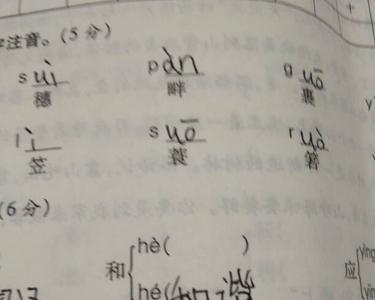 注音。(5分)
suì pàn guō
穗 畔 裹
lì suō ruò
笠 蓑 箬
(6分)
hè( )
和
hé(和谐
应